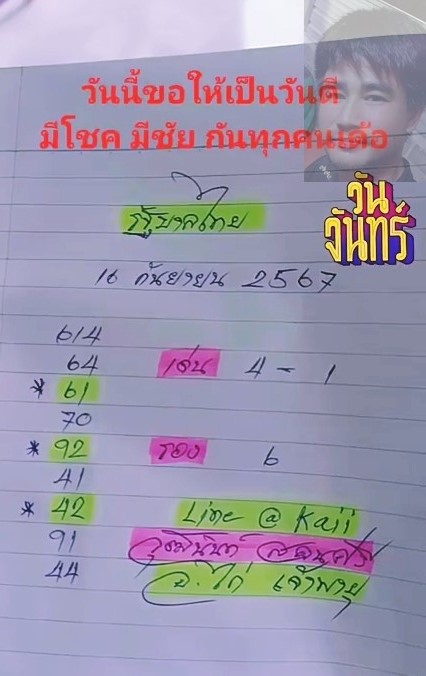 วันนี้ขอให้เป็นวันดี
มีโชค มีชัย กันทุกคนเด้อ
วัน
จันทร์
รัฐบาลไทย
16 กันยายน 2567
614
64 เด่น 4 - 1
* 61
70
* 92 รอง 6
41
* 42 Line @ Kaii
91
44 อ. ไก่ เจ้าพายุ